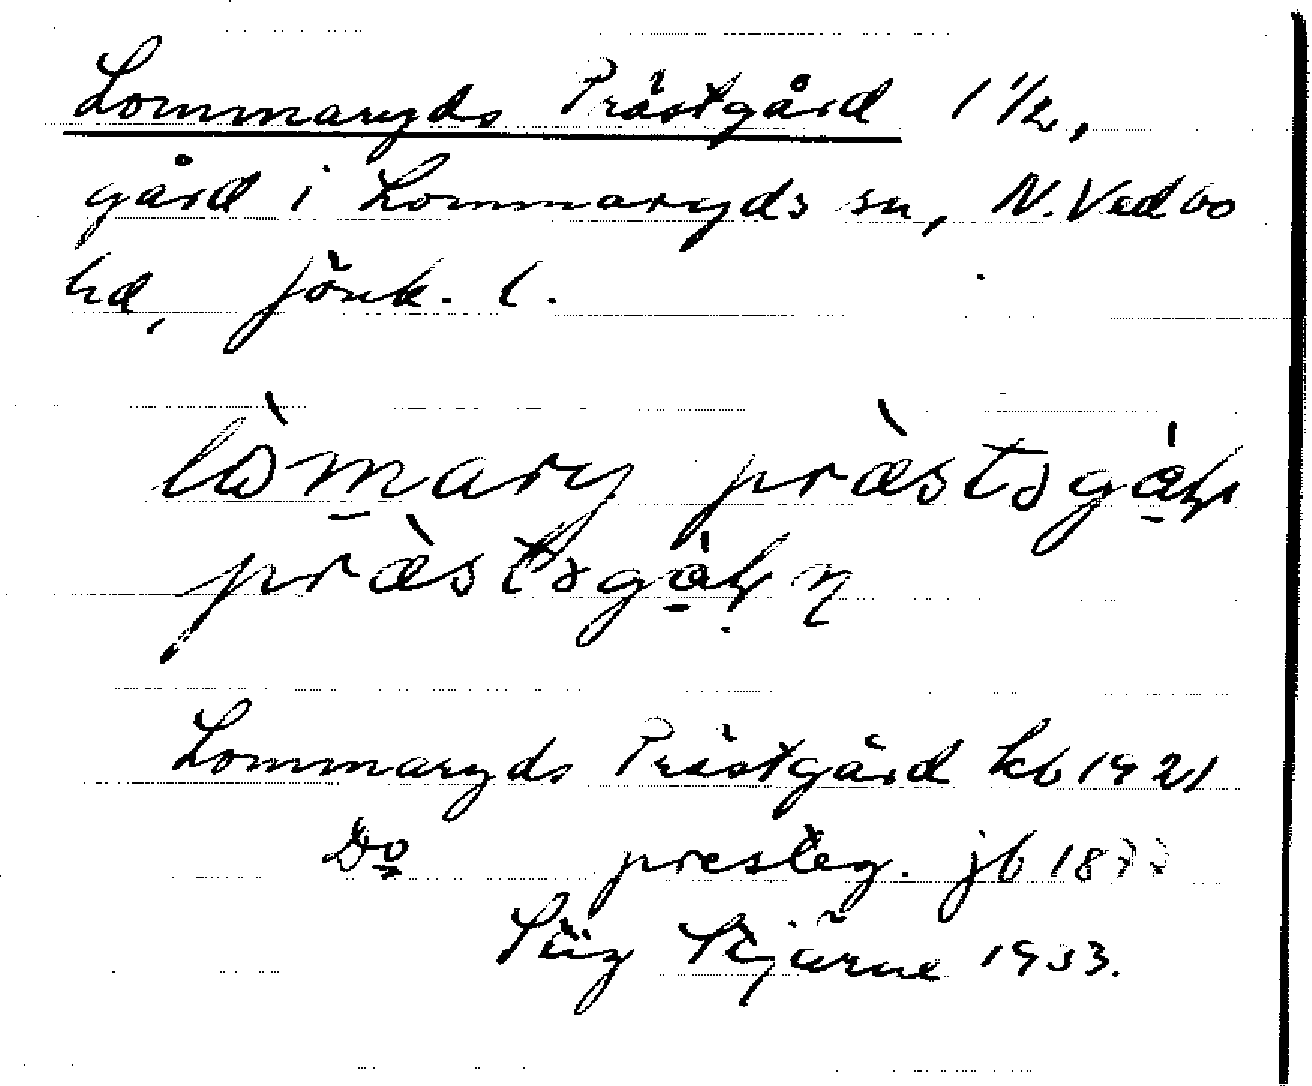 Lommaryds Prästgård 1 1/2,
gård i Lommaryds sn, N. Vedbo
hd, Jönk. l.
lòmary præ̀stsgàḷ
præ̀stsgàḷn
Lommaryds Prästgård kb 1921
Do presteg. jb 1877
Stig Tjärne 1933.